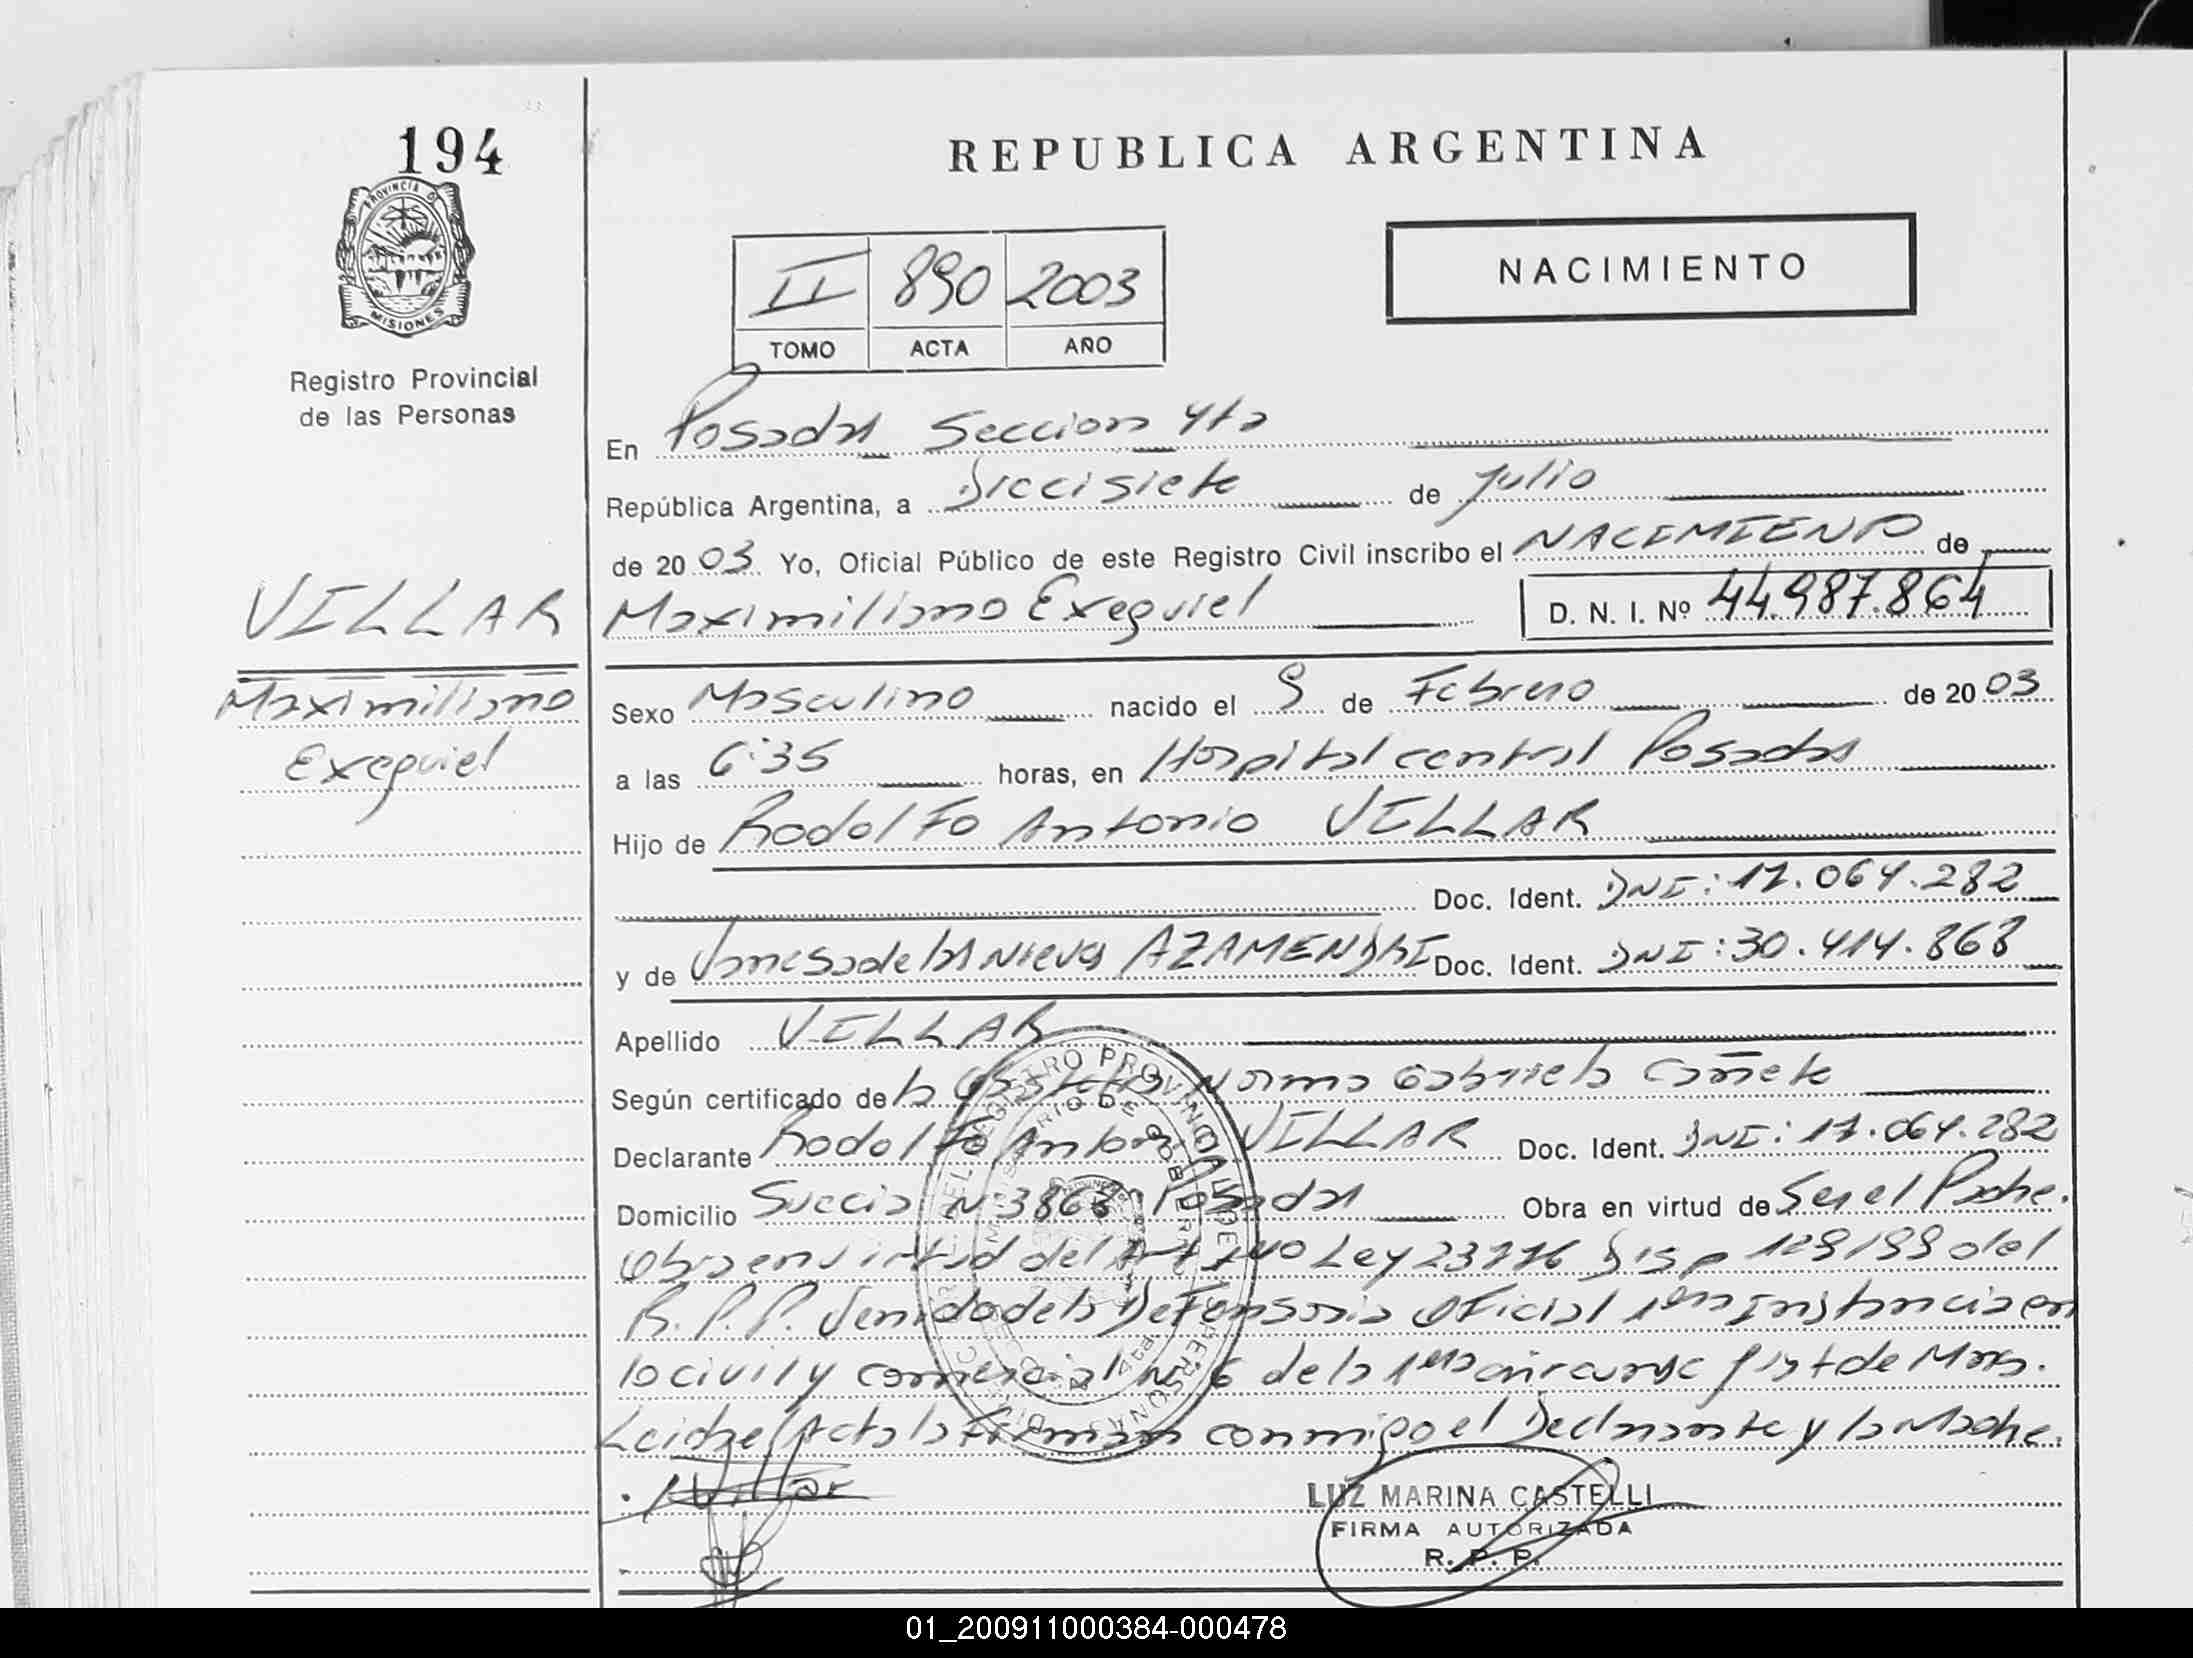 194
REPUBLICA ARGENTINA
PROVINCIA D
MISIONES
Registro Provincial
de las Personas
II 890 2003
TOMO ACTA AÑO
NACIMIENTO
En Posadas Seccion 4ta
República Argentina, a Diecisiete de Julio
de 2003 Yo, Oficial Público de este Registro Civil inscribo el NACIMIENTO de
VILLAR
Maximiliano Exequiel D. N. I. Nº 44.987.864
Maximiliano
Exequiel
Sexo Masculino nacido el 9 de Febrero de 2003
a las 6:35 horas, en Hospital central Posadas
Hijo de Rodolfo Antonio VILLAR
Doc. Ident. DNI: 17.064.282
y de Vanesa de las Nieves AZAMENDI Doc. Ident. DNI: 30.414.868
Apellido VILLAR
Según certificado de la Obstetra Norma Gabriela Cañete
Declarante Rodolfo Antonio VILLAR Doc. Ident. DNI: 17.064.282
Domicilio Suecia Nº 3868 Posadas Obra en virtud de Ser el Padre.
Obra en virtud del Art 1ro Ley 23776 Disp 129/99 del
R.P.P. Venida de la Defensoria Oficial 1era Instancia en
lo civil y comercial Nº 6 de la 1era de Mnes.
Leida el Acta la Firman conmigo el Declarante y la Madre.
Villar
LUZ MARINA CASTELLI
FIRMA AUTORIZADA
R. P. P.
01_200911000384-000478